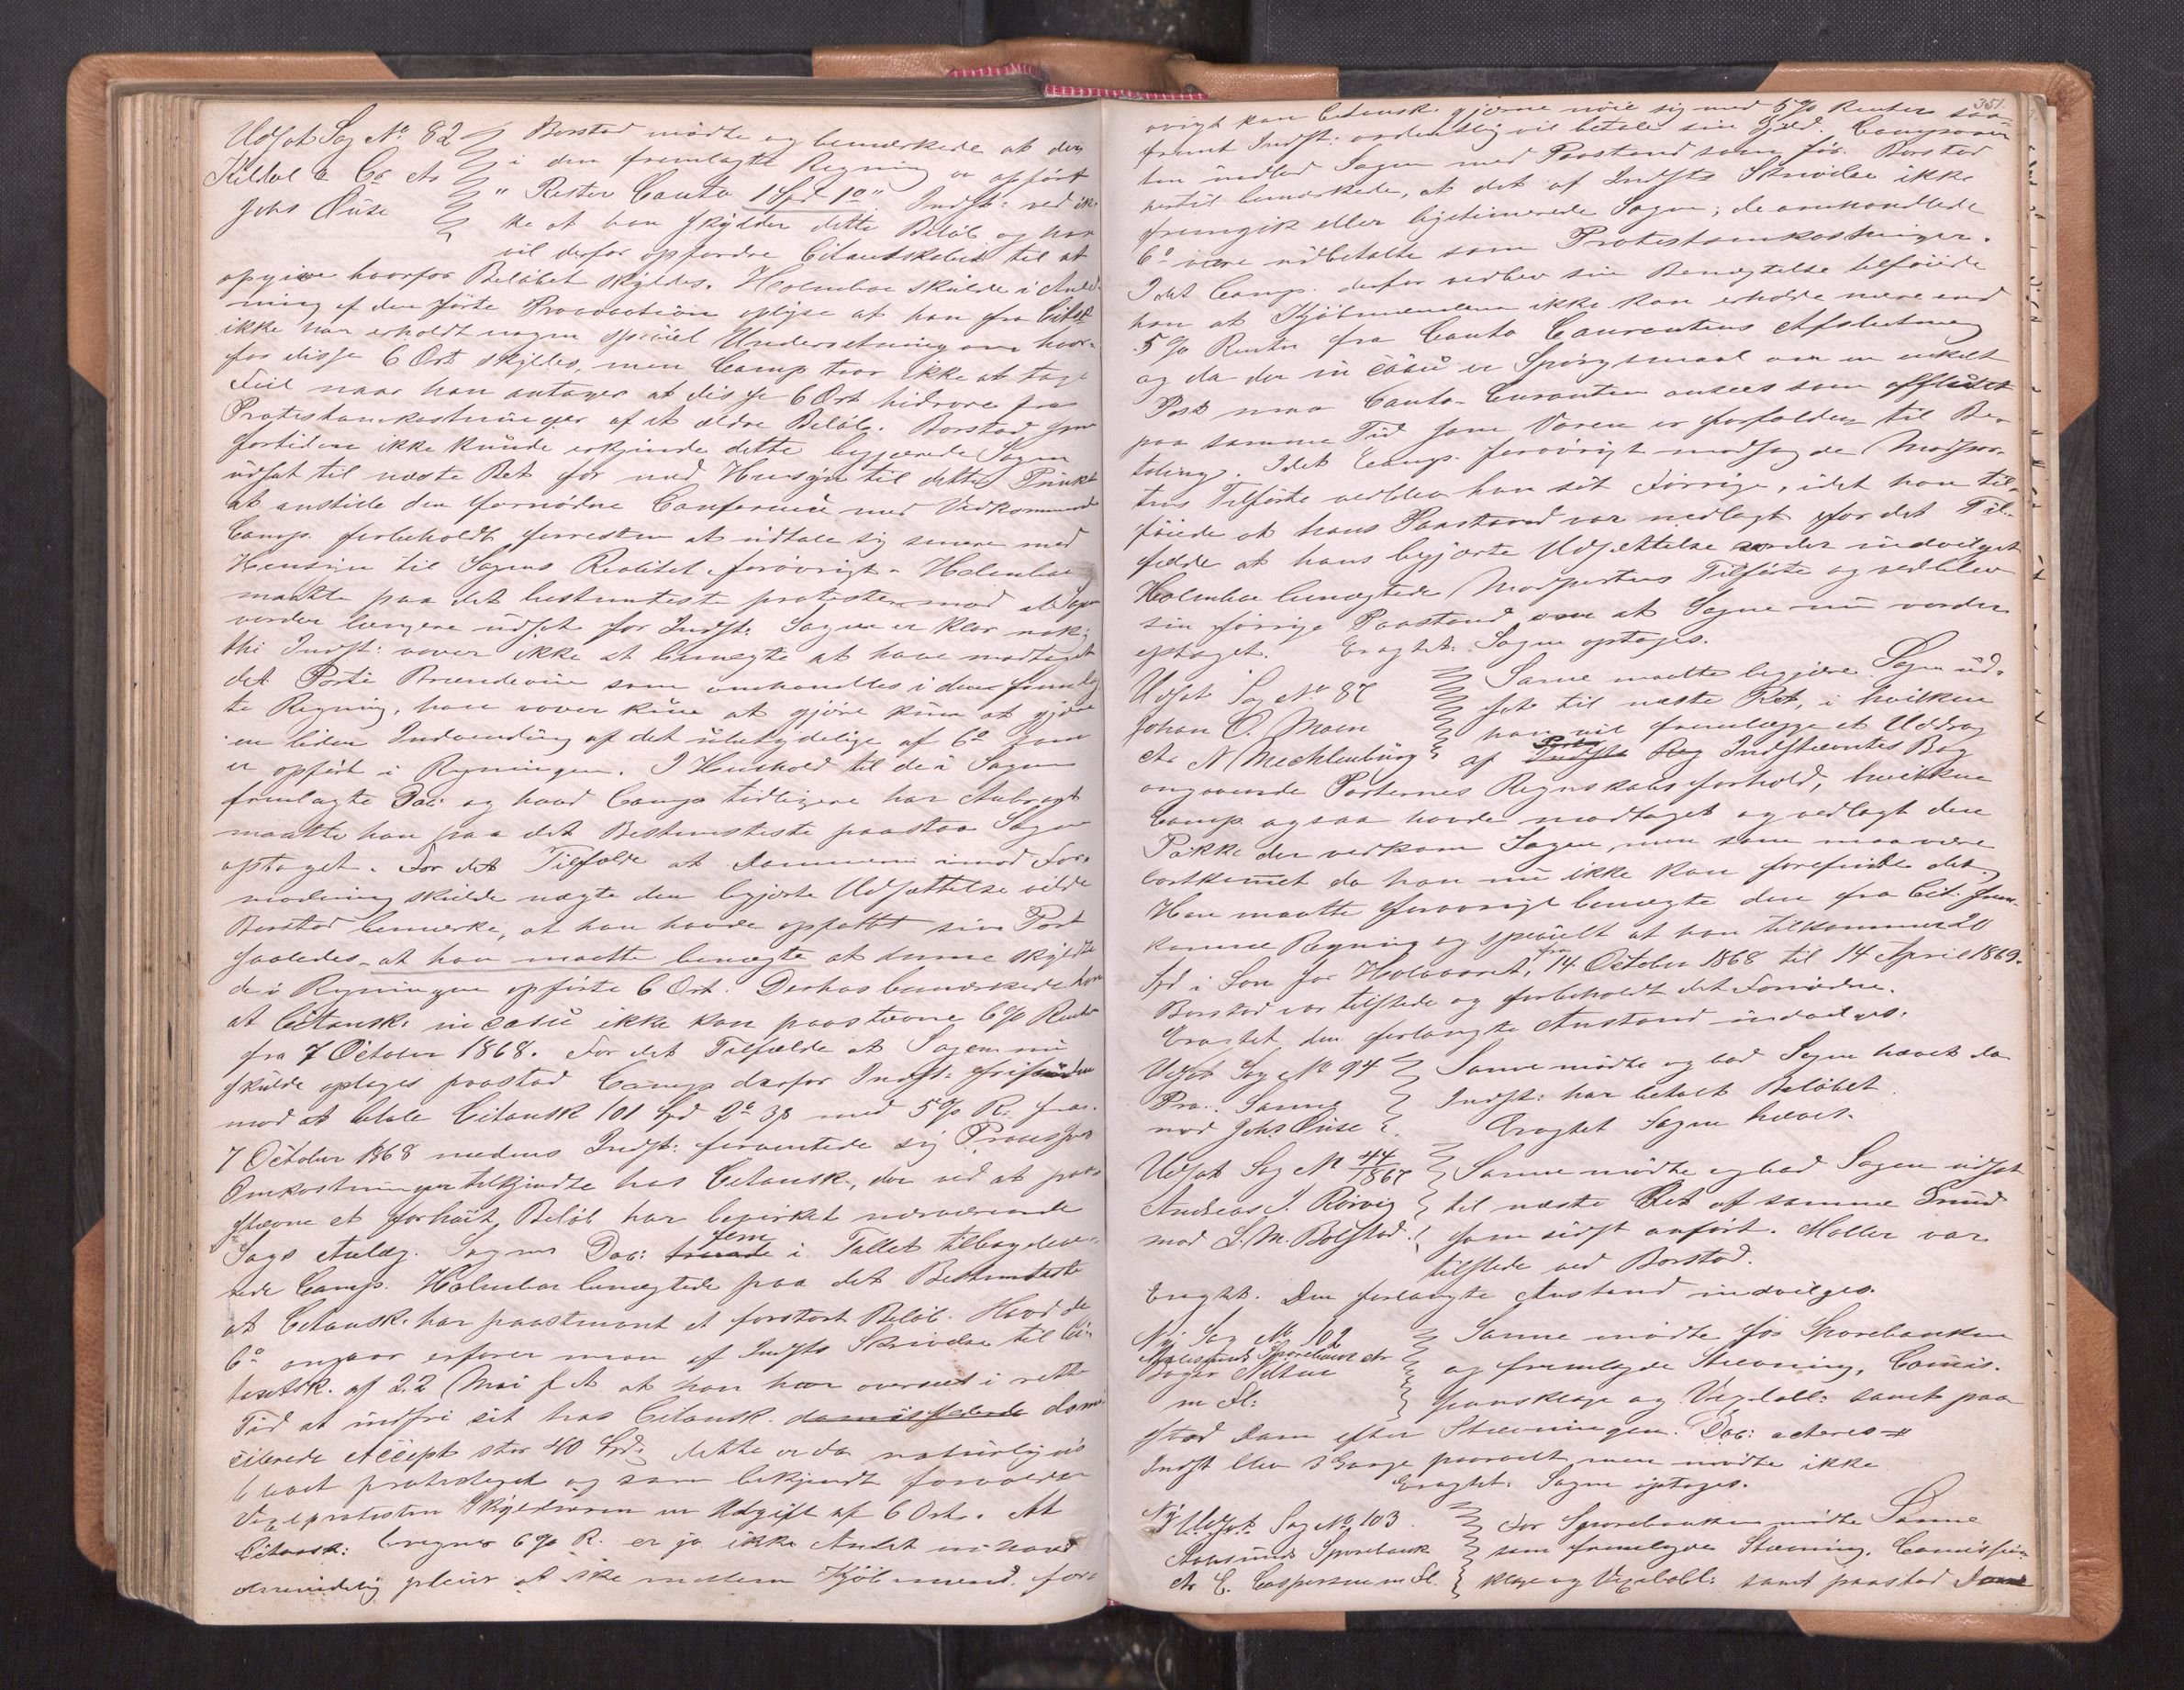 Udsat Sag No 82
Kildal & Co ctr
Johs Quse
Borstad mødte og bemærkede at der
i den fremlagte Regning er opført
"Rester Conto 1 Spd 1 o". Indst: ved ik-
ke at han skylder dette Beløb og han
vil derfor opfordre Citantskabet til at
opgive hvorfor Beløbet skyldes. Holmboe skulde i Anled-
ning af denførte Provocation oplyse at han fra Citsk
ikke har erholdt nogen speciel Underretning om hvor-
for disse 6 Ort skyldes, men Comp tror ikke at tage
Feil naar han antager at disse 6 Ort hidrøre fra
Protestomkostninger af et ældre Beløb. Borstad som
fortiden ikke kunde erkjende dette begjærede Sagen
udsat til næste Ret for med Hensyn til dette Punkt
at anstille den fornødne Conference med Vedkommende
Comp. forbeholdt forresten at udtale sig senere med
Hensyn til Sagens Realitet forøvrigt. Holmboe
maatte paa det bestemteste protestere mod at Sagen
vorder længere udsat for Indst. Sagen er klar nok;
thi Indst: vover ikke at benægte at have modtaget
det Parti Brændeviin som omhandles i den fremlag-
te Regning, han vover kun at gjøre kun at gjøre
en liden Indvending af det ubetydelige af 6 o som
er opført i Regningen. I Henhold til de i Sagen
fremlagte Doc: og hvad Comp tidligere har Anbragt
maatte han paa det Bestemteste paastaa Sagen
optaget. For det Tilfælde at Dommeren imod For-
modning skulde nægte den begjærte Udsættelse vilde
Borstad bemærke, at han havde opfattet sin Part
saaledes at han maatte benægte at denne skyldte
de i Regningen opførte 6 Ort. Derhos bemærkede han
at Citansk. in casu ikke kan paastævne 6% Renter
fra 7 October 1868. For det Tilfælde at Sagen nu
skulde optages paastod Comp derfor Indst: frifunden
mod at betale Citansk 101 Spd 2 o 3 s med 5% R. fra
7 October 1868 medens Indst: forventede sig Process
Omkostninger tilkjendte hos Citansk, der ved at paa-
stævne et forhøit Beløb har bevirket nærværende
Sags Anlæg. Sagens Doc: fem i Tallet tilbagelever-
ede Comp. Holmboe benægtede paa det Bestemteste
at Citansk. har paastævnt et forstort Beløb. Hvad de
6 o angaar erfarer man af Indsts Skrivelse til Ci-
tantsk. af 22 Mai f A at han har overseet i rette
Tid at indfri sit hos Citansk. domicilerende domi-
cilerede Accept stor 40 Spd; dette er da naturligvis
blevet protesteret og som bekjendt forvolder
Vexelprotesten Skyldneren en Udgift af 6 Ort. At
Citansk: beregner 6% R. er jo ikke Andet end hvad
almindelig pleier at ske mellem Kjøbmænd, for-
351.
øvrigt kan Citansk. gjerne nøie sig med 5% Renter saa-
fremt Indst: ordentlig vil betale sin Gjæld. Comparen-
ten nedlod Sagen med Paastand som før. Borstad
hertil bemærkede, at det af Indsts Skrivelse ikke
fremgik eller legitimerede Sagen; de omhandlede
6 o være udbetalte som Protestomkostninger.
Idet Comp. derfor vedblev sin Benægtelse tilføiede
han at Kjøbmændene ikke kan erholde mere end
5% Renter fra Conto Courantens Afslutning
og da der in casu er Spørgsmaal om en enkelt
Post maa Conto-Couranten ansees som afsluttet
paa samme Tid som Varen er forfalden til Be-
taling. Idet Comp. forøvrigt modsagde Modpar-
tens Tilførte vedblev han sit Forrige, idet han til-
føiede at hans Paastand var nedlagt for det Til-
fælde at hans begjærte Udsættelse ei indvilget
Holmboe benægtede Modpartens Tilførte og vedblev
sin forrige Paastand om at Sagen nu vorder
optaget. Eragtet: Sagen optages.
Udsat Sag No 87
Johan C. Moen
ctr N Mechlenburg
Sanne maatte begjære Sagen ud-
sat til næste Ret, i hvilken
han vil fremlægge et Uddrag
af Indstævntes Bog
angaaende Parternes Regnskabsforhold, hvilken
Comp ogsaa havde modtaget og vedlagt den
Pakke der vedkom Sagen, men som maa være
bortkommet da han nu ikke kan forefinde det.
Han maatte forøvrigt benægte den fra Cit: frem-
komne Regning og specielt at han tilkommer 20
Spd i Løn for Halvaaret, fra 14 October 1868 til 14 April 1869.
Borstad var tilstede og forbeholdt det Fornødne.
Eragtet den forlangte Anstand indvilges.
Udsat Sag No 94
Pro.. Sanne
mod Johs Quse
Sanne mødte og bad Sagen hævet da
Indst: har betalt Beløbet.
Eragtet Sagen hæves.
Udsat Sag No 44/1867
Andreas J. Rørvig
mod L. M. Bolstad.
Sanne mødte og bad Sagen udsat
til næste Ret af samme Grund
som sidst anført. Møller var
tilstede ved Borstad.
Eragtet. Den forlangte Anstand indvilges.
Ny Sag No 102
Aalesunds Sparebank ctr
Nilsen
m Fl:
Sanne mødte for Sparebanken
og fremlagde Stævning, Comis-
sionsklage og Vexelobl: samt paa-
stod Dom efter Stævningen. Doc: acteres #
Indst blev 3 Gange paaraabt men mødte ikke
Eragtet: Sagen optages.
Ny
Udsat Sag No 103
Aalesunds Sparebank
ctr C. Caspersen m Fl.
For Sparebanken mødte Sanne
som fremlagde Stævning, Comission-
klage og Vexelobl: samt paastod Dom